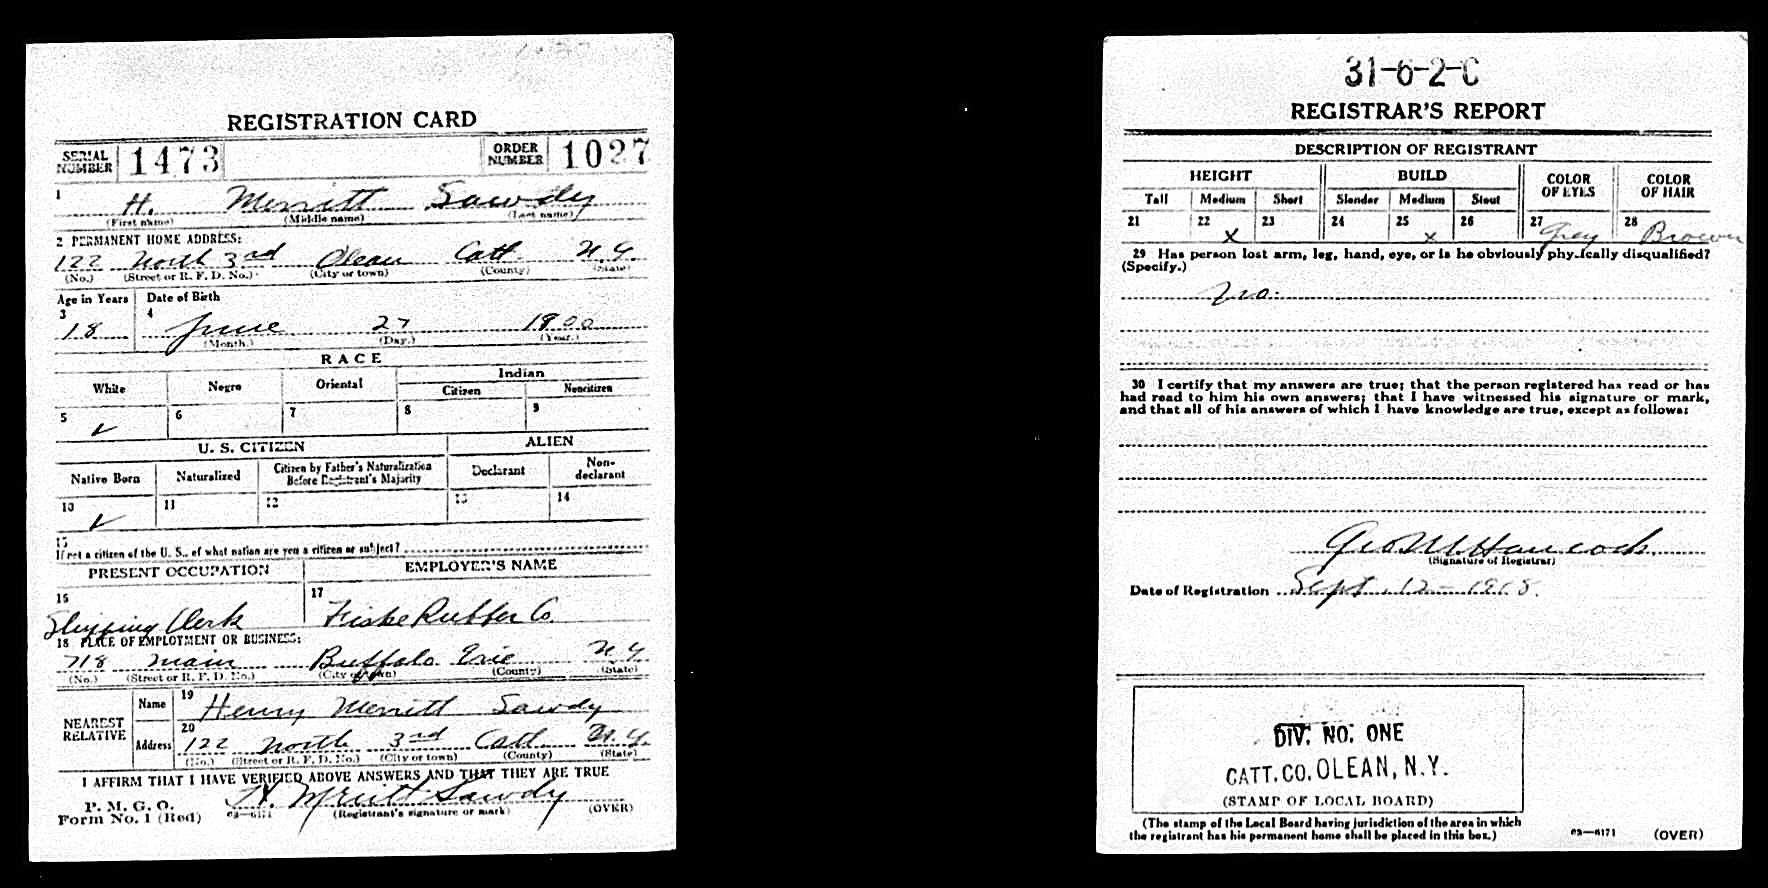 REGISTRATION CARD
SERIAL NUMBER 1473 ORDER NUMBER 1027
1 H. Merritt Sawdy
(First name) (Middle name) (Last name)
2 PERMANENT HOME ADDRESS:
122 North 3rd Olean Catt. N.Y.
(No.) (Street or R. F. D. No.) (City or town) (County) (State)
Age in Years Date of Birth
3 18 4 June 27 1900
(Month.) (Day.) (Year.)
RACE
White Negro Oriental Indian
Citizen Noncitizen
5 ✓ 6 7 8 9
U. S. CITIZEN ALIEN
Native Born Naturalized Citizen by Father's Naturalization Before Registrant's Majority Declarant Non-declarant
10 ✓ 11 12 13 14
15
If not a citizen of the U. S., of what nation are you a citizen or subject?
PRESENT OCCUPATION EMPLOYER'S NAME
16 Shipping Clerk 17 Fiske Rubber Co.
18 PLACE OF EMPLOYMENT OR BUSINESS:
718 Main Buffalo Erie N.Y.
(No.) (Street or R. F. D. No.) (City or town) (County) (State)
NEAREST RELATIVE
Name 19 Henry Merritt Sawdy
Address 20 122 North 3rd Catt. N.Y.
(No.) (Street or R. F. D. No.) (City or town) (County) (State)
I AFFIRM THAT I HAVE VERIFIED ABOVE ANSWERS AND THAT THEY ARE TRUE
P. M. G. O.
Form No. 1 (Red) 03—6171 H. Merritt Sawdy (OVER)
(Registrant's signature or mark)
31-6-2-C
REGISTRAR'S REPORT
DESCRIPTION OF REGISTRANT
HEIGHT BUILD COLOR OF EYES COLOR OF HAIR
Tall Medium Short Slender Medium Stout
21 22 x 23 24 25 x 26 27 Grey 28 Brown
29 Has person lost arm, leg, hand, eye, or is he obviously physically disqualified?
(Specify.)
No.
30 I certify that my answers are true; that the person registered has read or has
had read to him his own answers; that I have witnessed his signature or mark,
and that all of his answers of which I have knowledge are true, except as follows:
Geo M Hancock
(Signature of Registrar)
Date of Registration Sept. 12 - 1918.
DIV. NO. ONE
CATT. CO. OLEAN, N.Y.
(STAMP OF LOCAL BOARD)
(The stamp of the Local Board having jurisdiction of the area in which
the registrant has his permanent home shall be placed in this box.)
03—6171 (OVER)